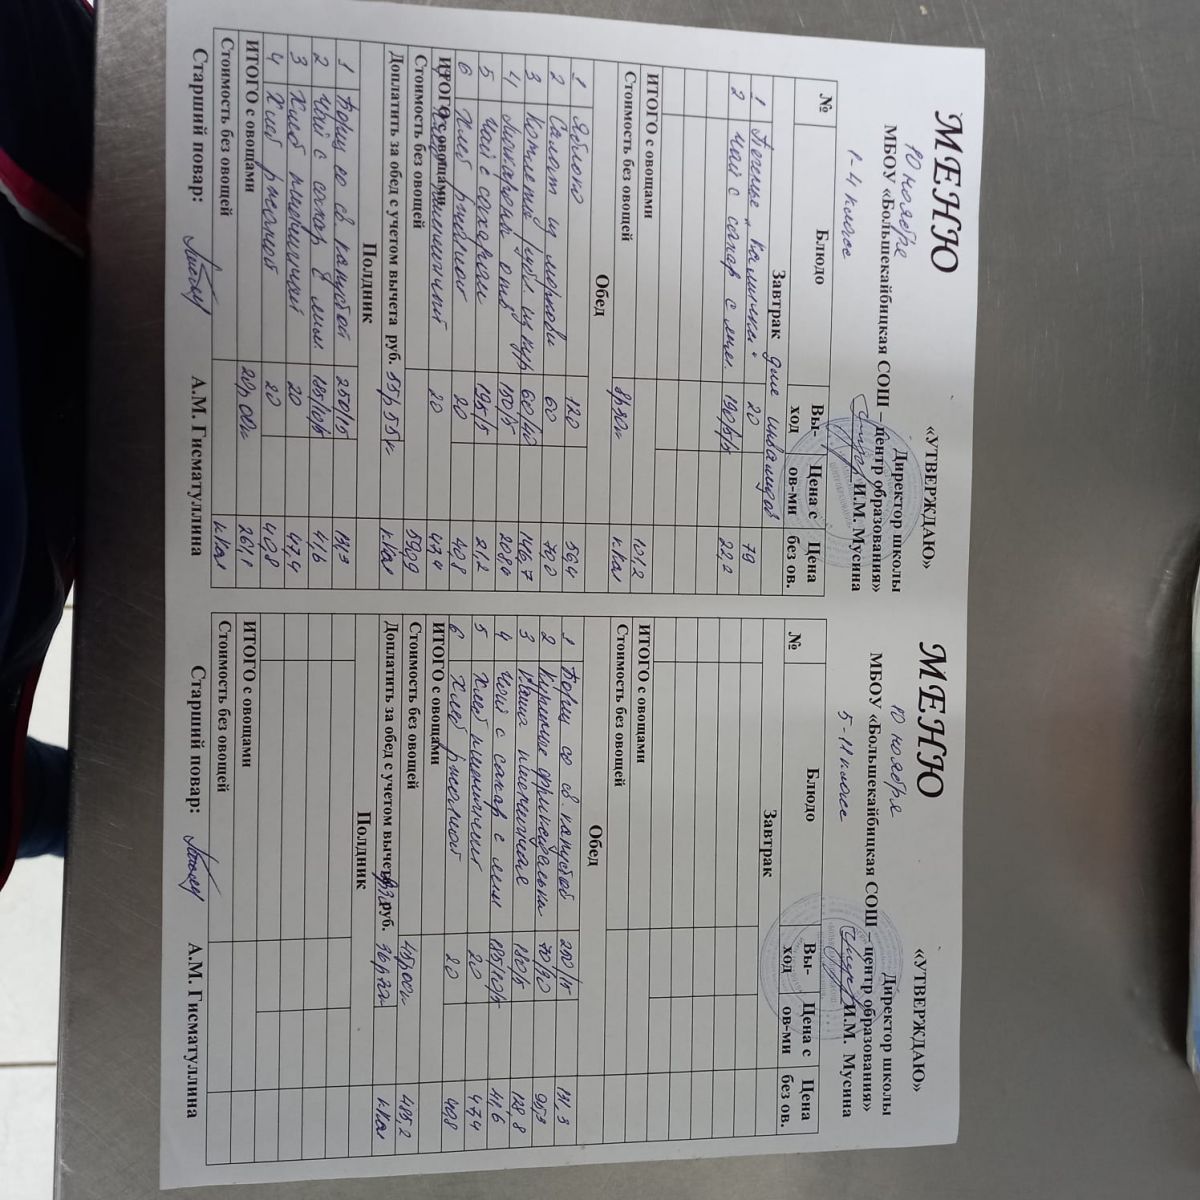 МЕНЮ
«УТВЕРЖДАЮ»
Директор школы
10 ноября
МБОУ «Большекайбицкая СОШ – центр образования»
И.М. Мусина
1-4 класс
№ Блюдо Вы-ход Цена с ов-ми Цена без ов.
Завтрак для инвалидов
1 Печенье 20 79
2 Чай с сахар с лим. 190/5/5 22,2
ИТОГО с овощами 101,2
Стоимость без овощей ккал
Обед
1 Яблоко 120 56,4
2 Салат из моркови 60 70,0
3 Котлета рубл из кур 60/40 146,7
4 Макароны отв 150/5 208,4
5 Чай с сахаром 195/5 21,2
6 Хлеб ржаной 20 40,8
ИТОГО с овощами Хлеб пшеничный 20 47,4
Стоимость без овощей 590,9
Доплатить за обед с учетом вычета руб. 55р55к ккал
Полдник
1 Борщ со св капустой 250/15 131,3
2 Чай с сахар с лим. 185/10/5 41,6
3 Хлеб пшеничный 20 47,4
4 Хлеб ржаной 20 40,8
ИТОГО с овощами 20р00к 261,1
Стоимость без овощей ккал
Старший повар: А.М. Гисматуллина
МЕНЮ
«УТВЕРЖДАЮ»
Директор школы
10 ноября
МБОУ «Большекайбицкая СОШ – центр образования»
И.М. Мусина
5-11 класс
№ Блюдо Вы-ход Цена с ов-ми Цена без ов.
Завтрак
ИТОГО с овощами
Стоимость без овощей
Обед
1 Борщ со св капустой 250/15 131,3
2 Куриные фрикадельки 70/30 95,3
3 Каша пшеничная 180/5 128,8
4 Чай с сахар с лим 185/10/5 41,6
5 Хлеб пшеничный 20 47,4
6 Хлеб ржаной 20 40,8
ИТОГО с овощами
Стоимость без овощей 45р00к 485,2
Доплатить за обед с учетом вычета руб. ккал
Полдник
ИТОГО с овощами
Стоимость без овощей
Старший повар: А.М. Гисматуллина